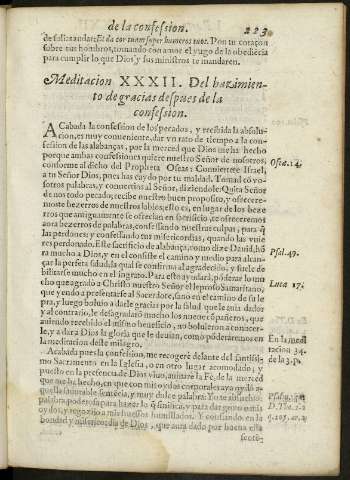 de la confession. 223
sobre tus hombros, tomando con amor el yugo de la obediẽcia
para cumplir lo que Dios y sus ministros te mandaren.
Meditacion XXXII. Del hazimien-
to de gracias despues de la
confession.
ACabada la confession de los pecados, y recibida la absolu-
cion, es muy conueniente, dar vn rato de tiempo a la con-
fession de las alabanças, por la merced que Dios me ha hecho
porque ambas confessiones quiere nuestro Señor de nosotros,
conforme al dicho del Propheta Oseas: Conuiertete Israel,
Osee. 14.
a tu Señor Dios, pues has caydo por tu maldad. Tomad cõ vo-
sotros palabras, y conuertios al Señor, diziendole: Quita Señor
de nos todo pecado; recibe nuestro buen proposito, y ofrecere-
moste bezerros de nuestros labios; esto es, en lugar de los beze
rros que antiguamente se ofrecian en sacrificio, te ofreceremos
aora bezerros de palabras, confessando nuestras culpas, para q̃
las perdones; y confessando tus misericordias, quando las vuie
res perdonado. Este sacrificio de alabança, como dize Dauid, hõ
Psal. 49.
ra mucho a Dios, y en el consiste el camino y medio para alcan-
çar la perfeta salud, la qual se confirma al agradecido, y suele de-
bilitarse mucho en el ingrato. Para esto ayudarà, põderar lo mu
cho que agradò a Christo nuestro Señor el leproso Samaritano,
Luca 17.
que yendo a presentarse al Sacerdote, sano en el camino de su le
pra, y luego boluio a darle gracias por la salud que le auia dado:
y al contrario, le desagradarõ mucho los nueue compañeros, que
auiendo recibido el mismo beneficio, no boluieron a conocer-
le, y a dar a Dios la gloria que le deuian, como põderaremos en
En la medi
la meditacion deste milagro.
tacion 34.
Acabada pues la confession, me recogerè delante del santissi-
de la 3. p.
mo Sacramento en la Iglesia, o en otro lugar acomodado; y
puesto en la presencia de Dios viuo, auiuarè la Fè, de la merced
que me ha hecho, en que con mis oydos corporales aya oydo a-
quella fauorable sentẽcia, y muy dulce palabra: Yo te absueluo:
D. Tho. 2. 2.
oydos, y regozijo a mis huessos humillados. Y confiando en la
bondad y misericordia de Dios, que aura dado por buena esta